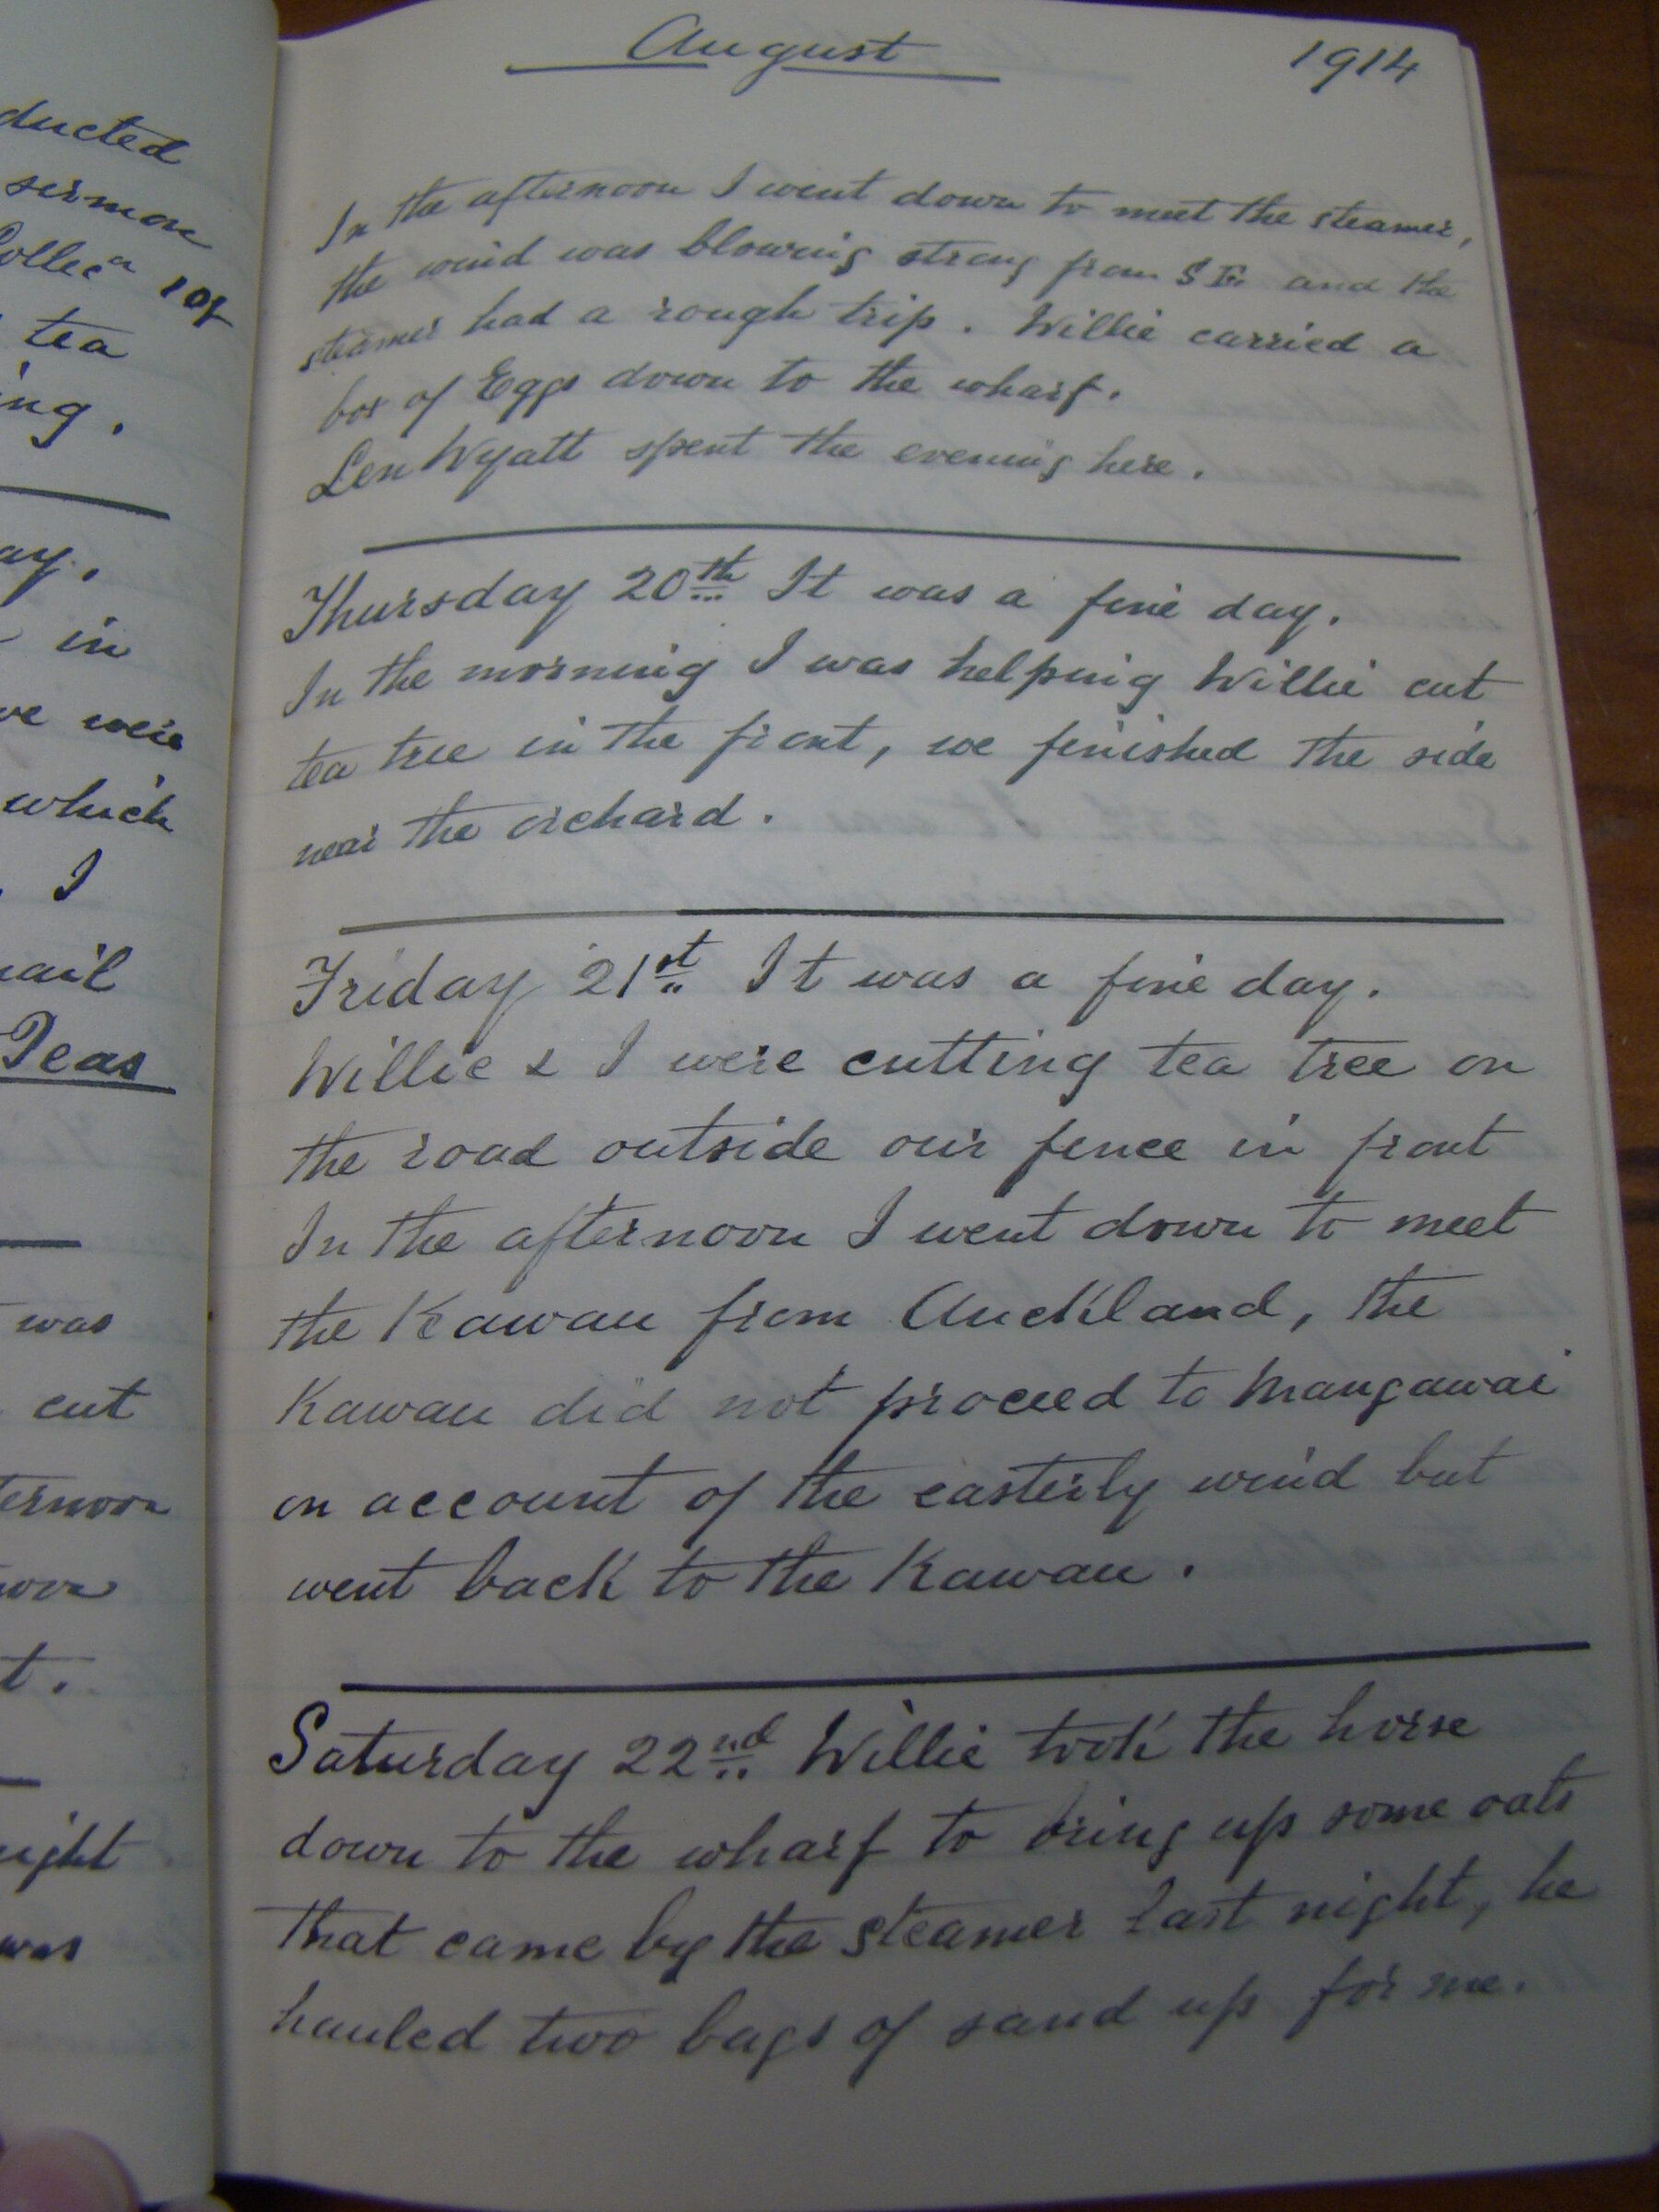 ducted
sermon
Collecn 10/
tea
ing.
ay.
in
we were
which
I
mail
Peas
was
cut
ternoon
noon
t.
night
was
August 1914
In the afternoon I went down to meet the steamer,
the wind was blowing strong from S.E. and the
steamer had a rough trip. Willie carried a
box of Eggs down to the wharf.
Len Wyatt spent the evening here.
Thursday 20th It was a fine day.
In the morning I was helping Willie cut
tea tree in the front, we finished the side
near the orchard.
Friday 21st It was a fine day.
Willie & I were cutting tea tree on
the road outside our fence in front
In the afternoon I went down to meet
the Kawau from Auckland, the
Kawau did not proceed to Mangawai
on account of the easterly wind but
went back to the Kawau.
Saturday 22nd Willie took the horse
down to the wharf to bring up some oats
that came by the steamer last night, he
hauled two bags of sand up for me.